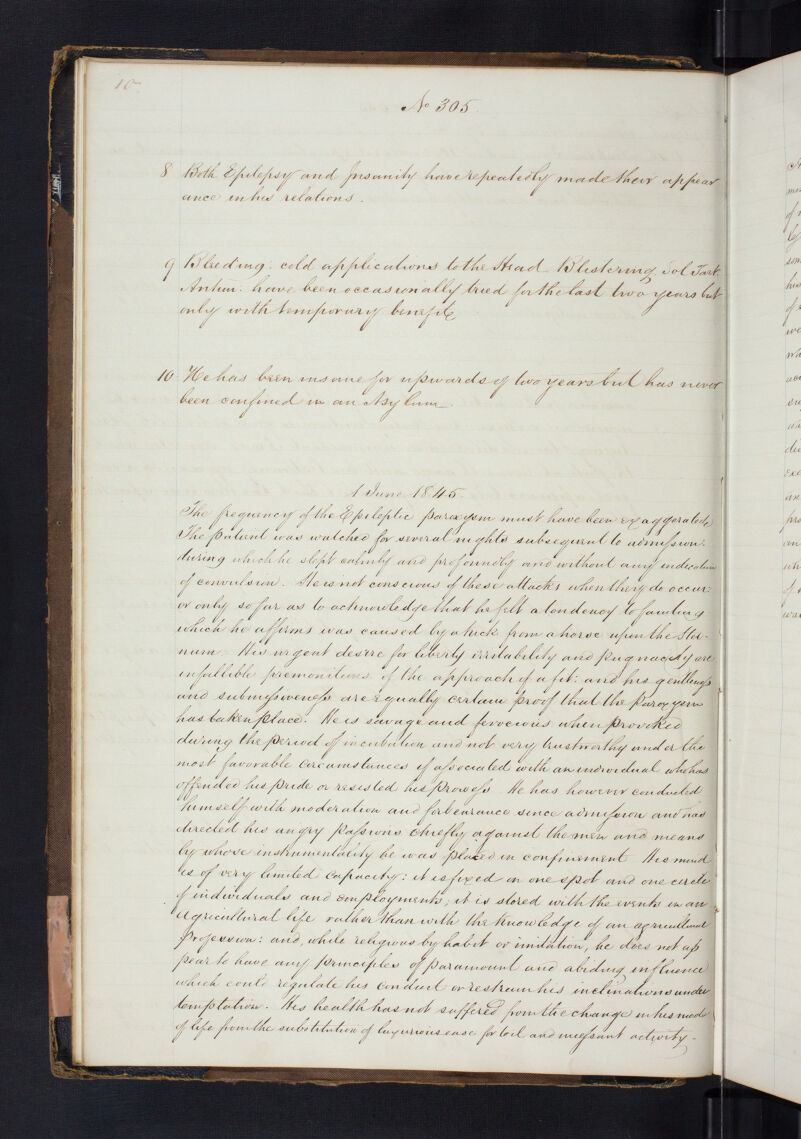 10
No 305.
8 Both Epilepsy and Insanity have repeatedly made their appear
ance in his relations.
9 Bleeding: cold applications to the Head Blistering, Sol Tart.
Antim: have been occasionally tried for the last two years but
only with temporary benefit
10 He has been insane for upwards of two years but has never
been confined in an Asylum
1 June 1845.
The frequency of the Epileptic paroxysm must have been exaggerated.
The patient was watched for several nights subsequent to admission:
during which he slept calmly and profoundly and without any indication
of convulsion. He is not conscious of these attacks when they do occur:
or only so far as to acknowledge that he felt a tendency to fainting
which he affirms was caused by a kick from a horse upon the Ster-
num. His urgent desire for liberty irritability and pugnacity are
infallible premonitions of the approach of a fit: and his gentleness
and submissiveness are equally certain proof that the paroxysm
has taken place. He is savage and ferocious when provoked
during the period of incubation and not very trustworthy under the
most favorable circumstances if associated with an individual who has
offended his pride or resisted his prowess He has however conducted
himself with moderation and forbearance since admission and has
directed his angry passions chiefly against the men and means
by whose instrumentality he was placed in confinement His mind
is of very limited capacity: it is fixed on one spot and one circle
of individuals and employments, it is stored with the events in an
agricultural life rather than with the knowledge of an agricultural
profession: and, while religious by habit or imitation, he does not ap
pear to have any principles of paramount and abiding influence
which could regulate his conduct or restrain his inclinations under
temptation. His health has not suffered from the change in his mode
of life from the substitution of luxurious ease for toil and incessant activity.